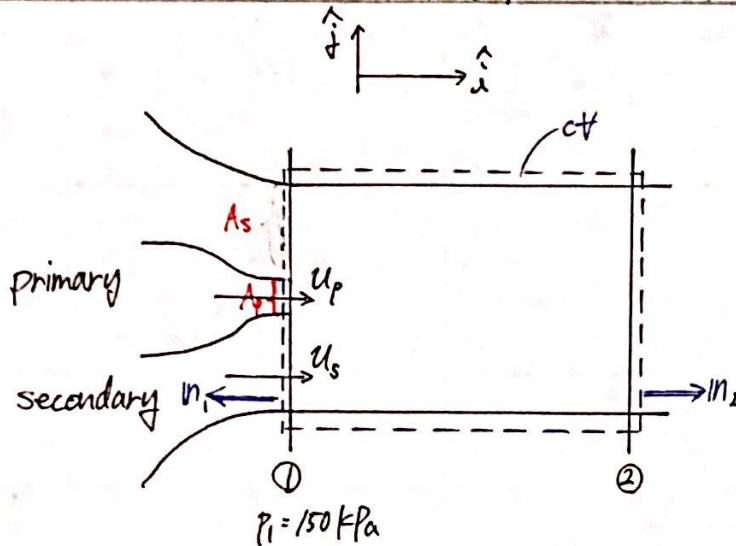 ĵ
î
c∀
As
primary
Ap
up
us
secondary
n₁
n₂
①
②
p₁=150kPa